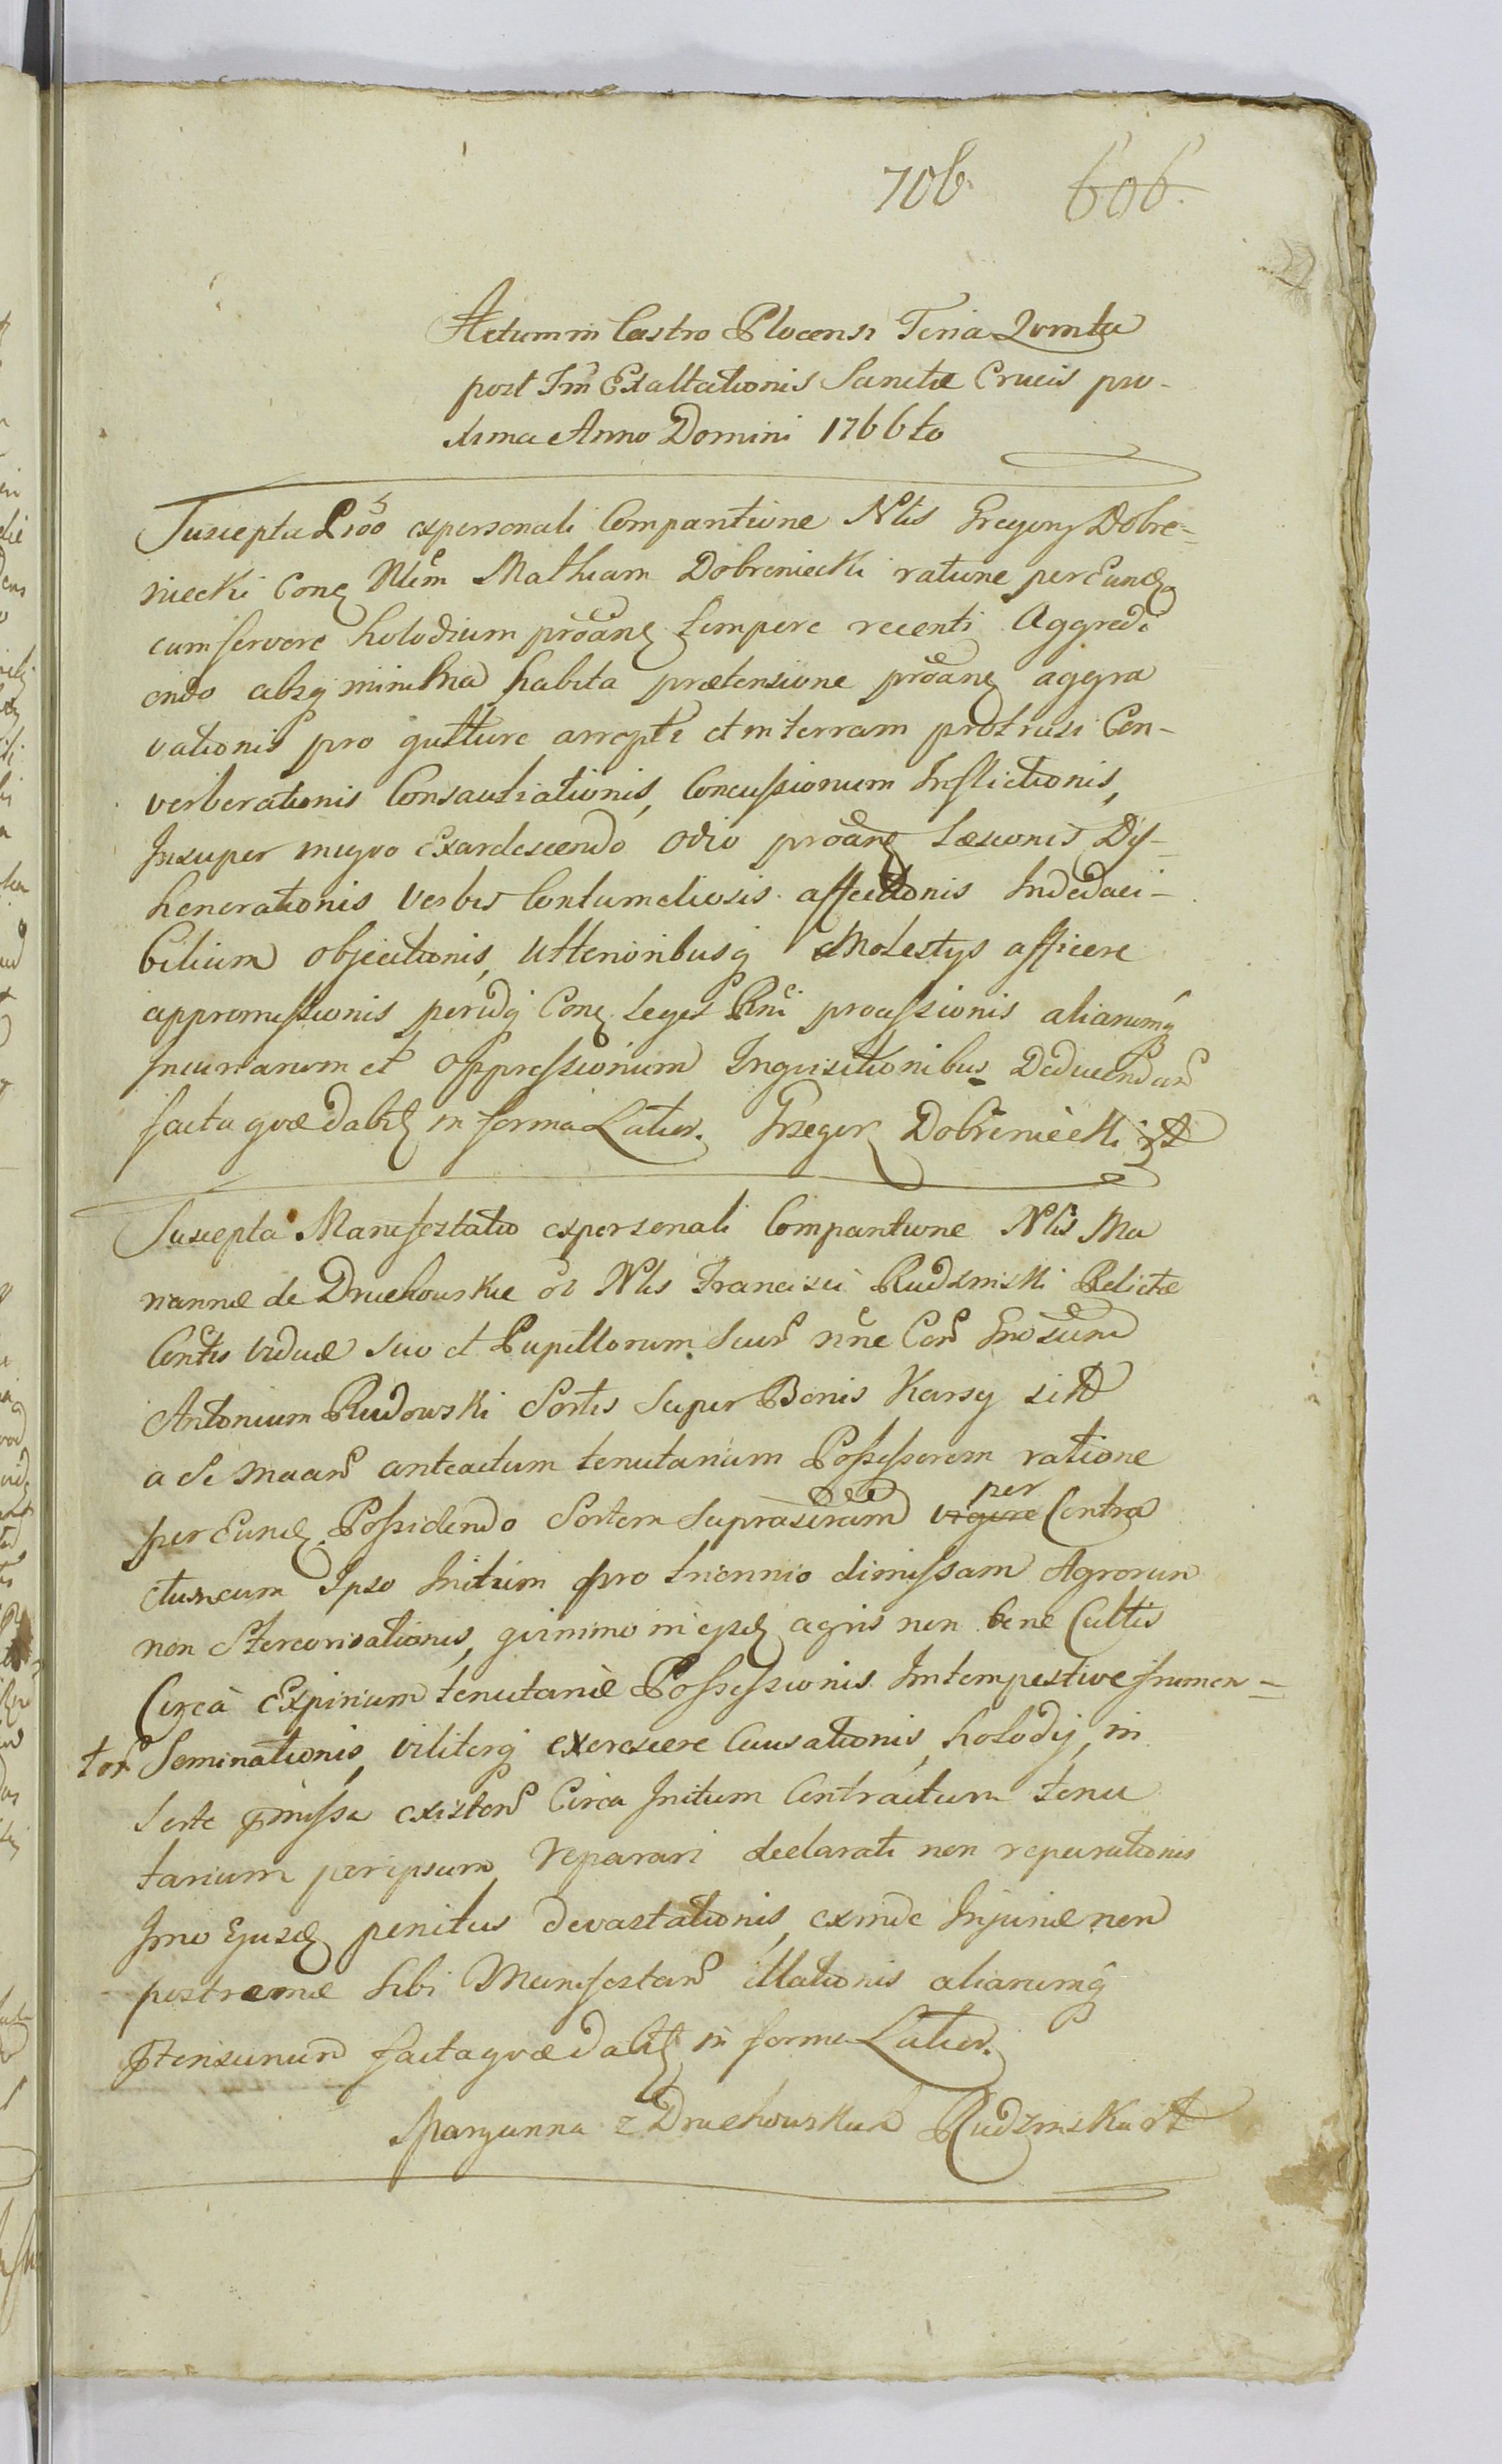 706. 606.
Actum in Castro Plocensi Feria Quinta
post Fm Exaltationis Sanctæ Crucis pro-
xima Anno Domini 1766to
Suscepta Prõo expersonali Comparitione Nlis Gregory Dobre=
niecki Conq Nlem Mathiam Dobreniecki ratione per Eundq
cum fervore holodium prõanq tempore recenti Aggredi
endo absq minima habita prætensione prõanq aggra
vationis pro gutture arrepti et in terram protrusi Con-
verberationis Consauciationis, Concussionum Inflictionis,
Insuper iniquo Exardescendo odio prõanq Læsionis Dys-
henerationis Verbis Contumeliosis affectionis Indedaci-
bilium objectionis, Ulterioribusq Molestys afficere
appromissionis periudq Conq Leges Rni processionis aliarumq
Iniuriarum et Oppressionum Inquisitionibus Deducendar
facta quæ dabitq in forma Latior. Grzegorz Dobreniecki mp
Suscepta Manifestatio expersonali Comparitione Nlis Ma
riannæ de Druchowskie ol Nlis Francisci Rudzinski Relictæ
Contis viduæ suo et Pupillorum suor nne Con Gnosum
Antonium Rudowski Sortis super Bonis Karsy sitt
a se maan anteactum tenutarium Possessorem ratione
per Eundq Possidendo Sortem suprascram vigore per Contra
ctum cum Ipso Initum pro triennio dimissam Agrorum
non Stercorisationis, quinimo in ejsdq agris non bene Cultis
Circa Expirium tenutariæ Possessionis Intempestive frumen=
tor Seminationis, viliterq exerescere Causationis, holodij, in
Sorte pmissa existen Circa Initum Contractum tenu
tarium per ipsum, reparari declarati non reparationis
Imo Ejusdq penitus devastationis, exinde Injuriæ non
postremæ sibi Manifestan illationis aliarumq
ptensionum facta quæ dabitq in forma Latior.
Maryanna z Druchowskich Rudzinska mp